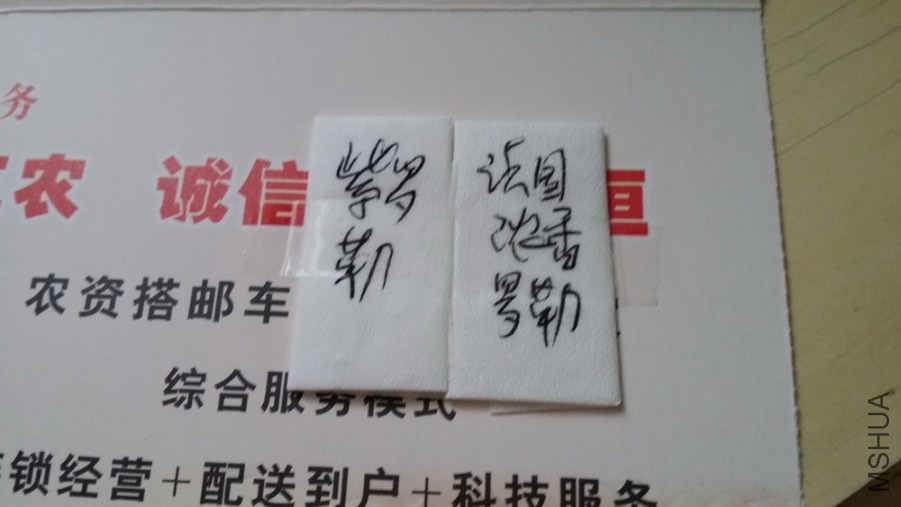 务
农 诚信 恒
农资搭邮车
综合服务模式
锁经营+配送到户+科技服务
紫罗
勒
法国
沈香
罗勒
MSHUA